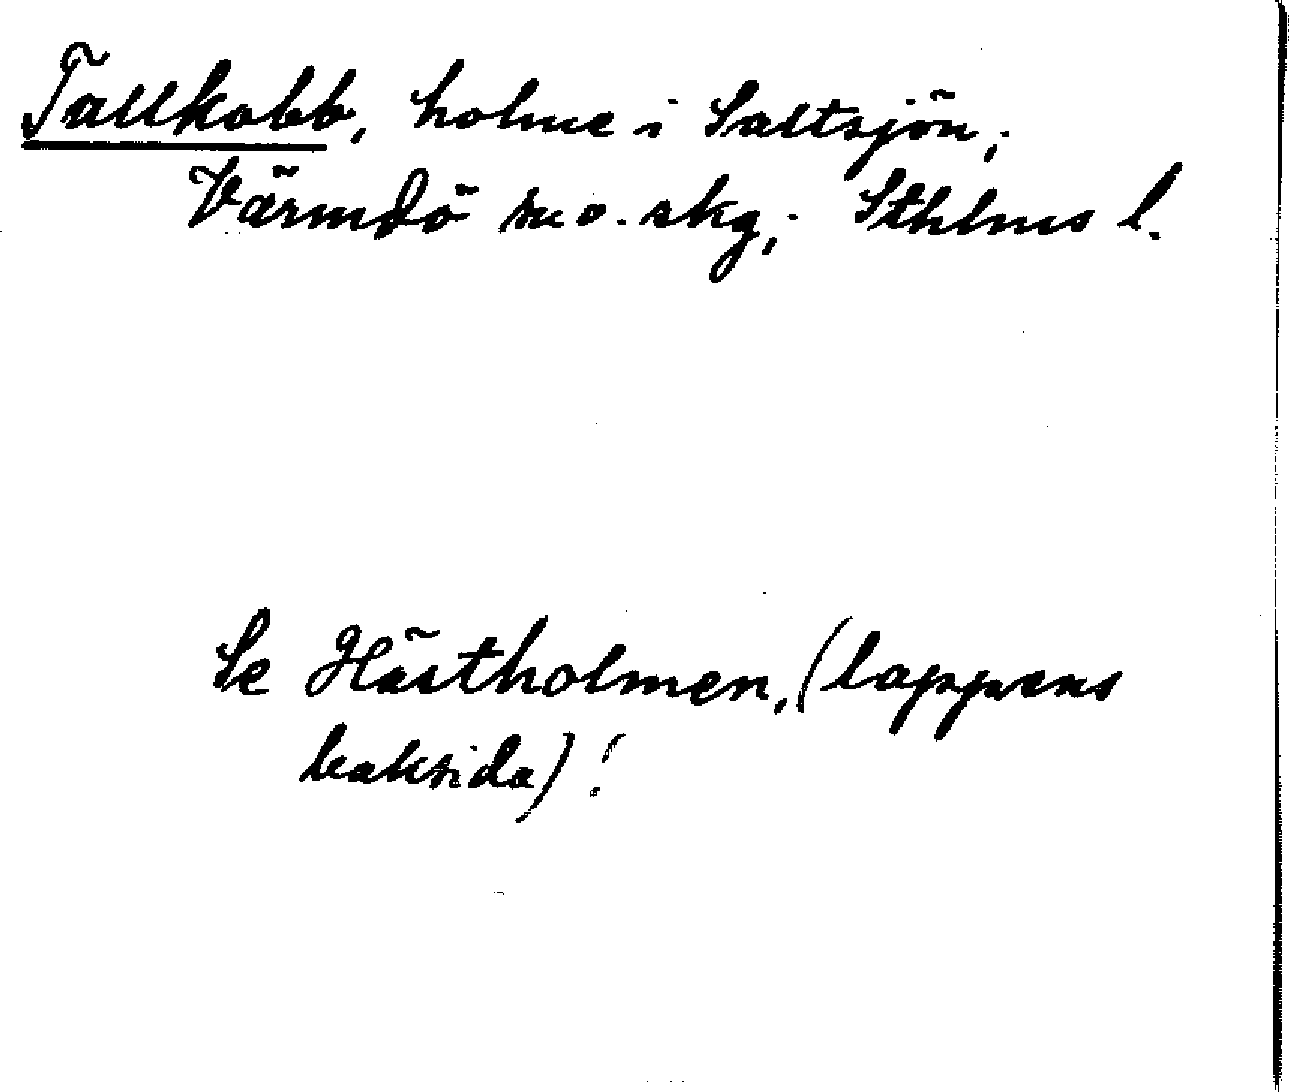 Tallkobb, holme i Saltsjön,
Värmdö sn o. skg, Sthlms l.
Se Hästholmen, (lappens
baksida)!